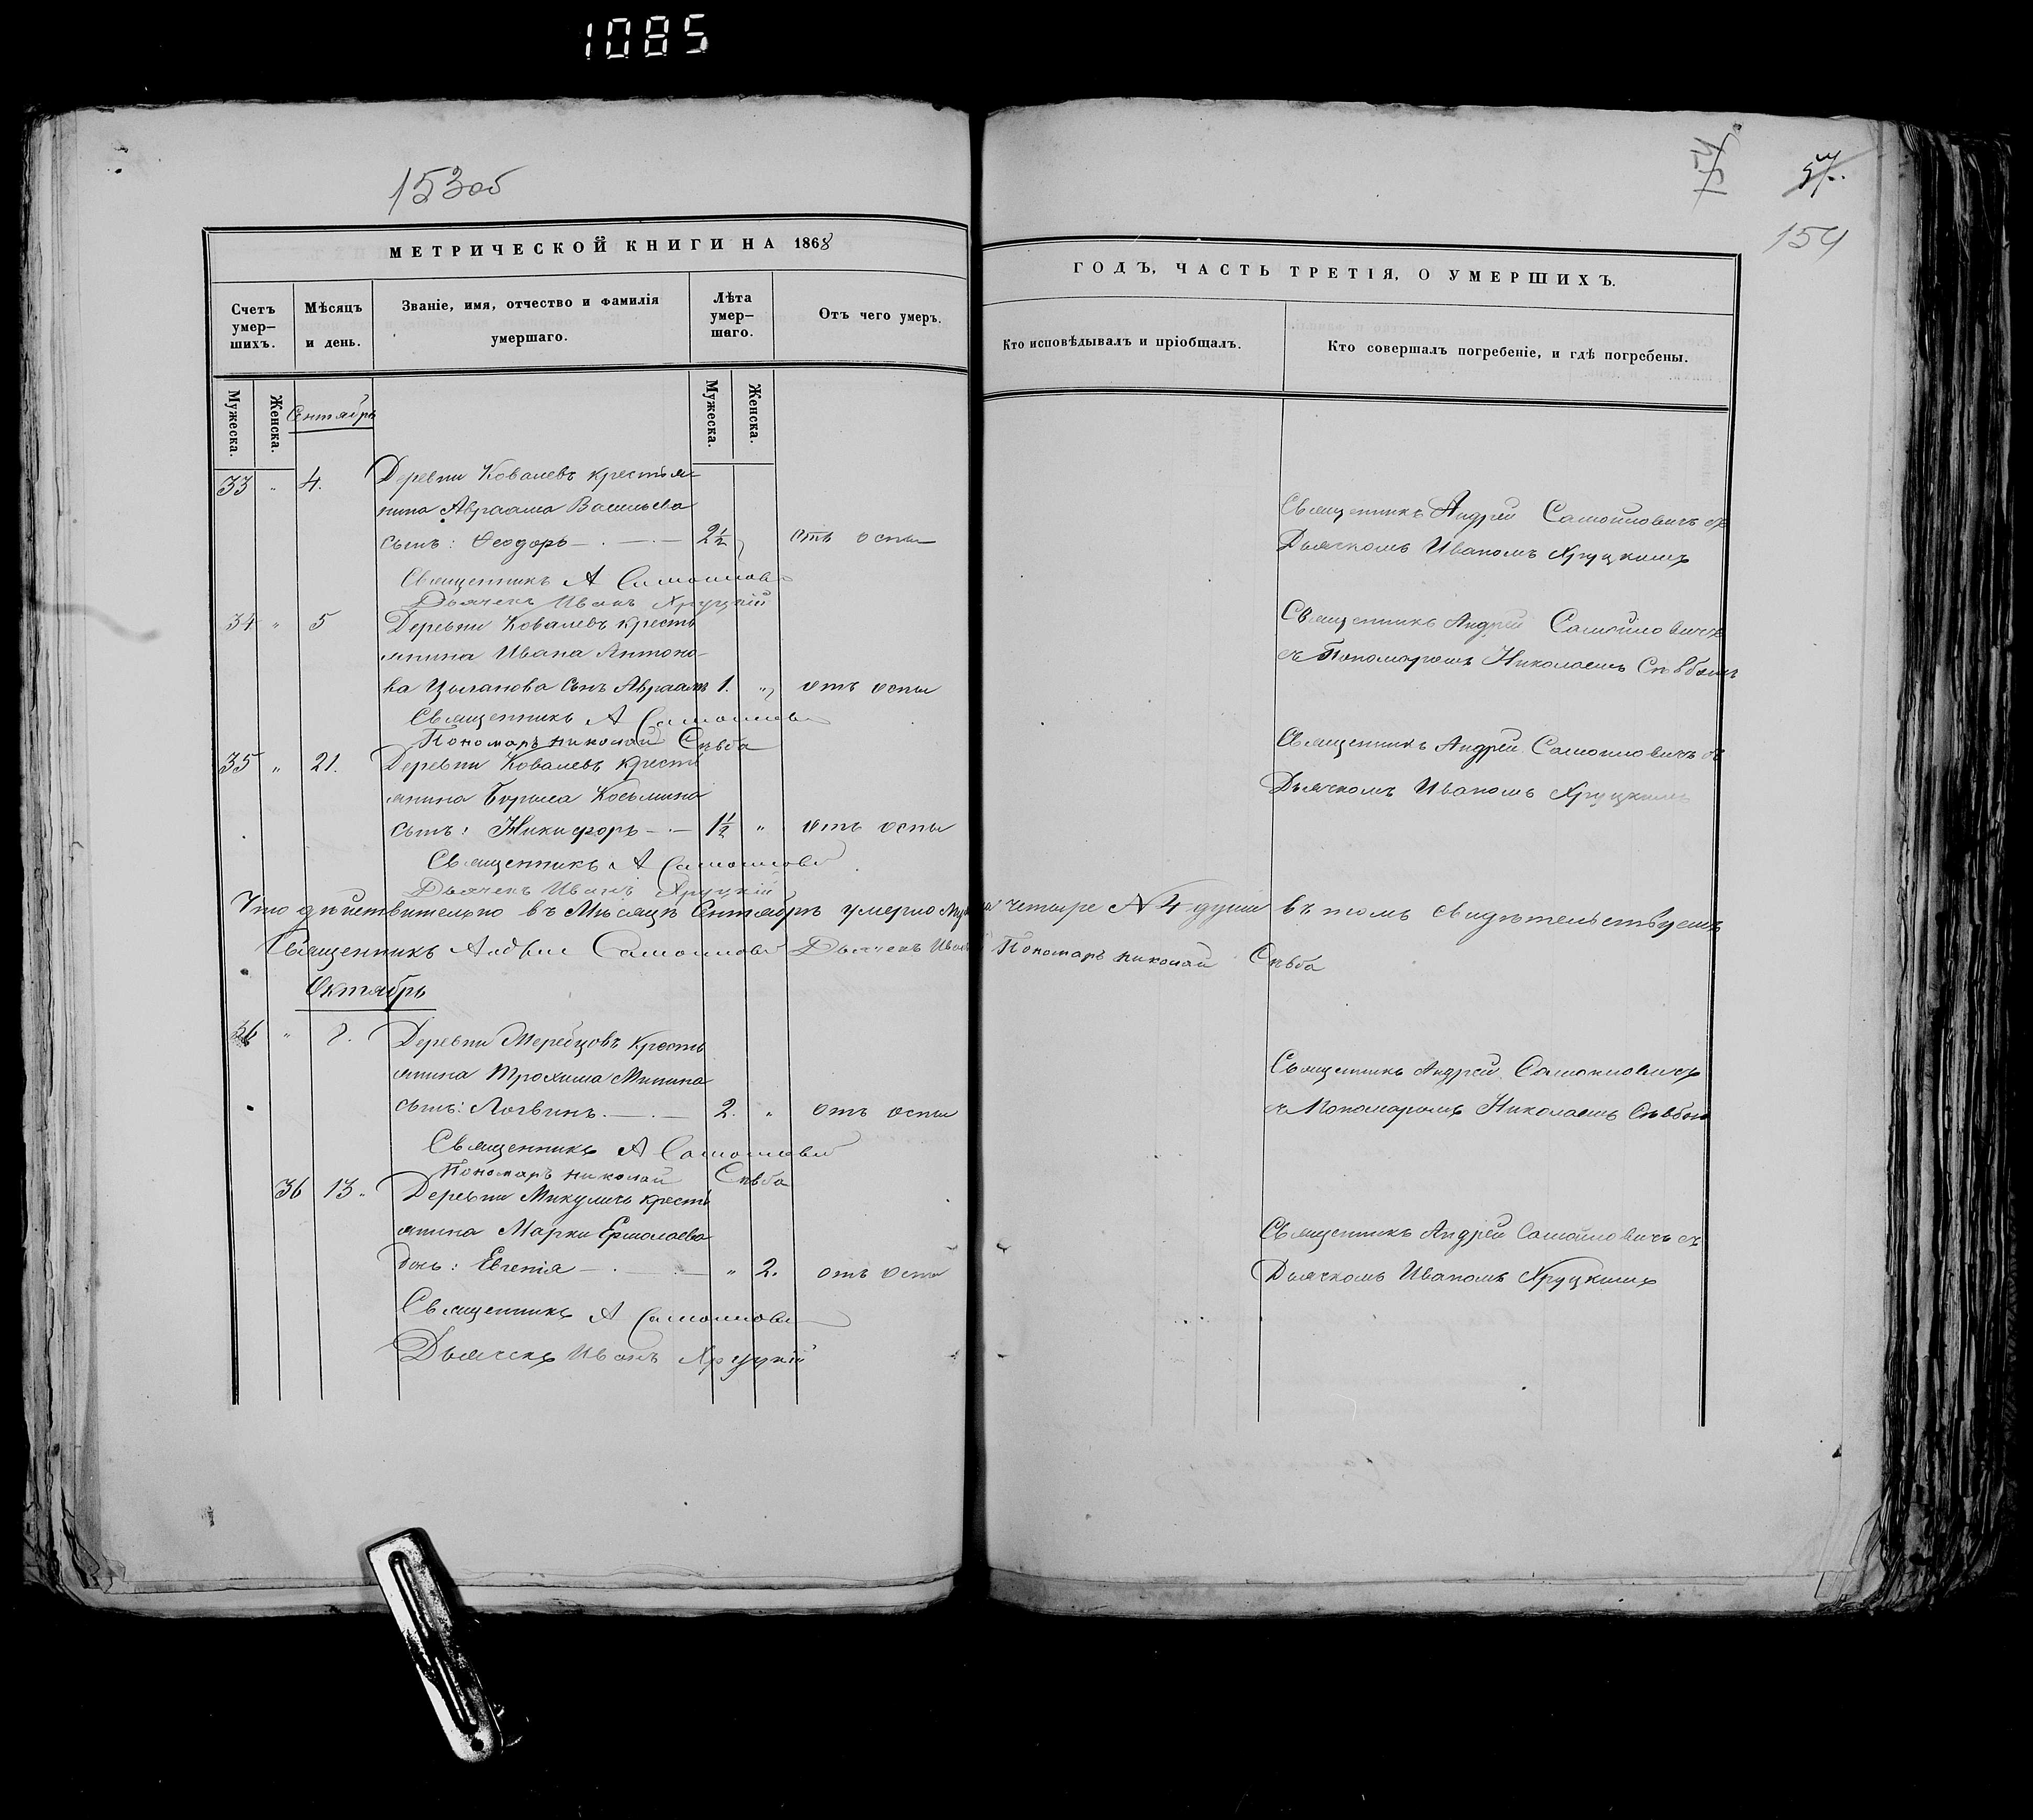 1085
153об
57
57.
154
МЕТРИЧЕСКОЙ КНИГИ НА 1868
ГОДЪ, ЧАСТЬ ТРЕТІЯ, О УМЕРШИХЪ.
Счетъ умер-
шихъ.
Мѣсяцъ
и день.
Званіе, имя, отчество и фамилія
умершаго.
Лѣта
умер-
шаго.
Отъ чего умеръ.
Кто исповѣдывалъ и пріобщалъ.
Кто совершалъ погребеніе, и гдѣ погребены.
Мужеска.
Женска.
Мужеска.
Женска.
Сентябрь
33 " 4. Деревни Ковалевъ крестья-
нина Авраама Васильева
сынъ: Ѳеодоръ 2½ " отъ оспы
Священникъ А Самойлович
Дьячекъ Иванъ Хруцкій
Священникъ Андрей Самойловичъ съ
Дьячкомъ Иваномъ Хруцкимъ
34 " 5 Деревни Ковалевъ кресть
янина Ивана Антоно-
ва Цыганова сынъ Авраамъ 1. " отъ оспы
Священникъ А Самойлович
Пономарь Николай Снѣба
Священникъ Андрей Самойловичъ
съ Пономаремъ Николаемъ Снѣбомъ
35 " 21. Деревни Ковалевъ кресть
янина Бориса Козьмина
сынъ: Никифоръ 1½ " отъ оспы
Священникъ А Самойлович
Дьячекъ Иванъ Хруцкій
Священникъ Андрей Самойловичъ съ
Дьячкомъ Иваномъ Хруцкимъ
Что дѣйствительно въ Мѣсяцѣ Сентябрѣ умерло четыре № 4 души въ томъ свидѣтельствуемъ
Священникъ Андрей Самойлович Дьячекъ Иванъ Пономарь Николай Снѣба
Октябрь
36 " 8. Деревни Жеребцовъ кресть
янина Трохима Минина
сынъ: Логвинъ 2. " отъ оспы
Священникъ А Самойлович
Пономарь Николай Снѣба
Священникъ Андрей Самойловичъ
съ Пономаремъ Николаемъ Снѣбой
36 13. Деревни Микуличъ кресть
янина Марки Ермолаева
дочь: Евгенія " 2. отъ оспы
Священникъ А Самойлович
Дьячекъ Иванъ Хруцкій
Священникъ Андрей Самойловичъ съ
Дьячкомъ Иваномъ Хруцкимъ